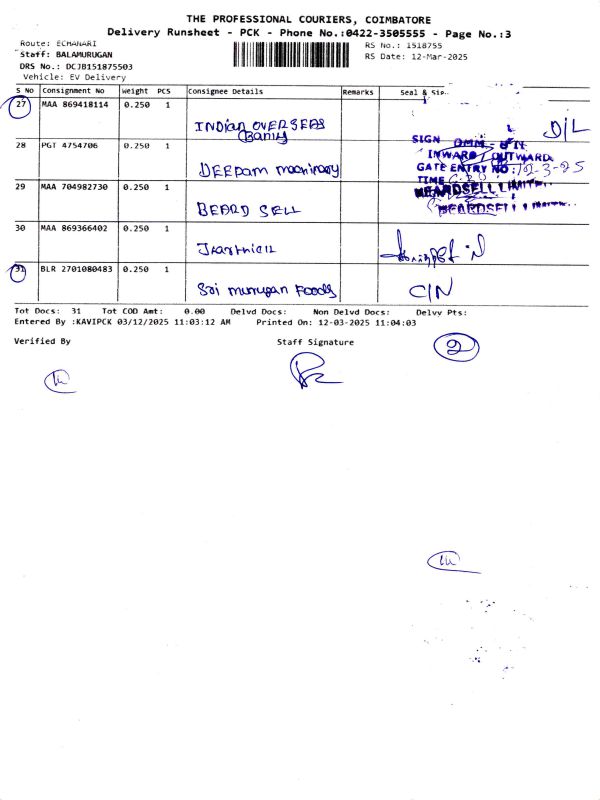 THE PROFESSIONAL COURIERS, COIMBATORE
Delivery Runsheet - PCK - Phone No.:0422-3505555 - Page No.:3
Route: ECHANARI
RS No.: 1518755
Staff: BALAMURUGAN
RS Date: 12-Mar-2025
DRS No.: DCJB151875503
Vehicle: EV Delivery
S No Consignment No Weight PCS Consignee Details Remarks Seal &
27 MAA 869418114 0.250 1
INDian OVERSEAS
Bank
D/L
28 PGT 4754706 0.250 1
DEEpam machinary
SIGN
INWARD / OUTWARD
GATE ENTRY NO: 12-3-25
TIME
29 MAA 704982730 0.250 1
BEARD SELL
BEARDSELL LIMITED
BEARDSELL LIMITED
30 MAA 869366402 0.250 1
31 BLR 2701080483 0.250 1
Sri murugan Foods
C/N
Tot Docs: 31 Tot COD Amt: 0.00 Delvd Docs: Non Delvd Docs: Delvy Pts:
Entered By :KAVIPCK 03/12/2025 11:03:12 AM Printed On: 12-03-2025 11:04:03
Verified By Staff Signature
2